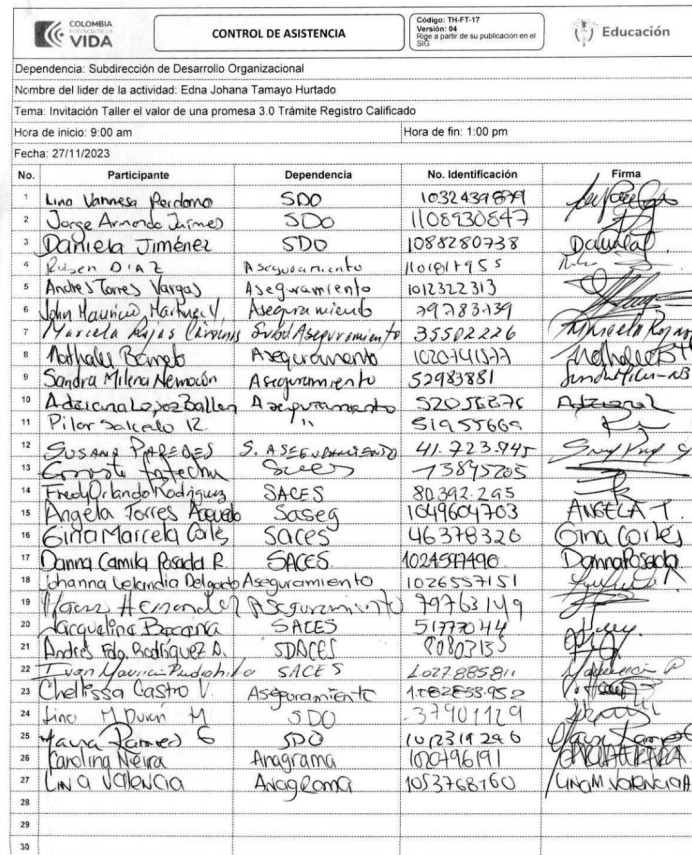 COLOMBIA
POTENCIA DE LA
VIDA
CONTROL DE ASISTENCIA
Código: TH-FT-17
Versión: 04
Rige a partir de su publicación en el
SIG
Educación
Dependencia: Subdirección de Desarrollo Organizacional
Nombre del lider de la actividad: Edna Johana Tamayo Hurtado
Tema: Invitación Taller el valor de una promesa 3.0 Trámite Registro Calificado
Hora de inicio: 9:00 am Hora de fin: 1:00 pm
Fecha: 27/11/2023
No. Participante Dependencia No. Identificación Firma
1 Lina Vannesa Perdomo SDO
2 Jorge Armando Jaimes SDO 1108930847
3 Daniela Jiménez SDO 1088280738
4 Ruben DIAZ Aseguramiento
5 Andres Torres Vargas Aseguramiento 1012322313
6 John Mauricio Martinez V. Aseguramiento 79783139
7 Marcela Rojas Subd Aseguramiento 35502226
8 Nathaly Barreto Aseguramiento
9 Sandra Milena Nemocón Aseguramiento 52983881
10 Adriana Lopez Ballen Aseguramiento
11 Pilar Salcedo 51955669
12 SUSANA PAREDES S. ASEGURAMIENTO 41.723.945
13
14 Fredy Orlando Rodriguez SACES 80.392.295
15 Angela Torres Acevedo Saseg 1049604703 ANGELA T.
16 Gina Marcela Cortes SACES 46378320 Gina Cortes
17 Danna Camila Posada R. SACES DannaPosada
18 Johanna Velandia Delgado Aseguramiento 1026557151
19 Hernandez Aseguramiento 79763149
20 Jacqueline SACES 51777044
21 Andrés Fdo. Rodríguez A. SDACES 80803135
22 Ivan Mauricio SACES 1027885811
23 Chelissa Castro V. Aseguramiento
24 Lina M Durán M SDO 37901129
25 SDO
26 Carolina Neira Anagrama
27 LINA VALENCIA Anagrama 1053768160 LINA M. VALENCIA
28
29
30